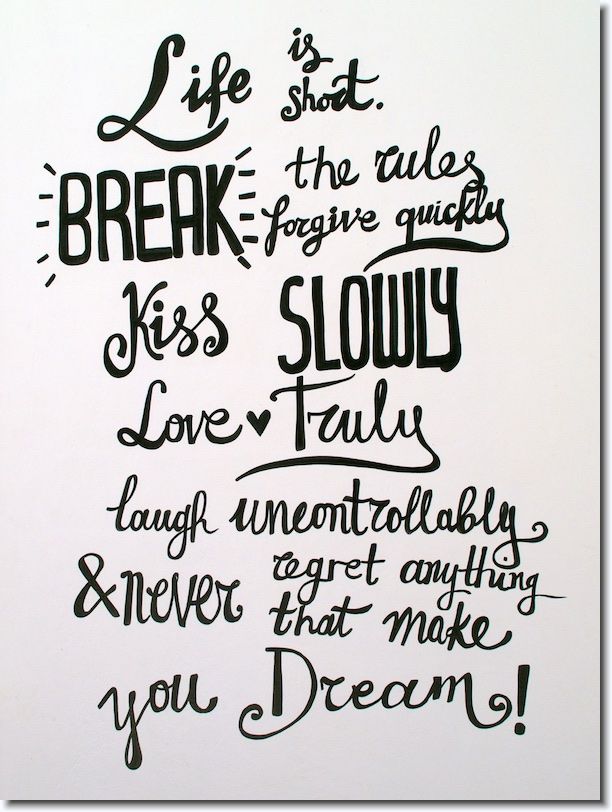 Life is short.
BREAK the rules
forgive quickly
Kiss SLOWLY
Love ♥ Truly
laugh uncontrollably
& never regret anything
that make
you Dream!